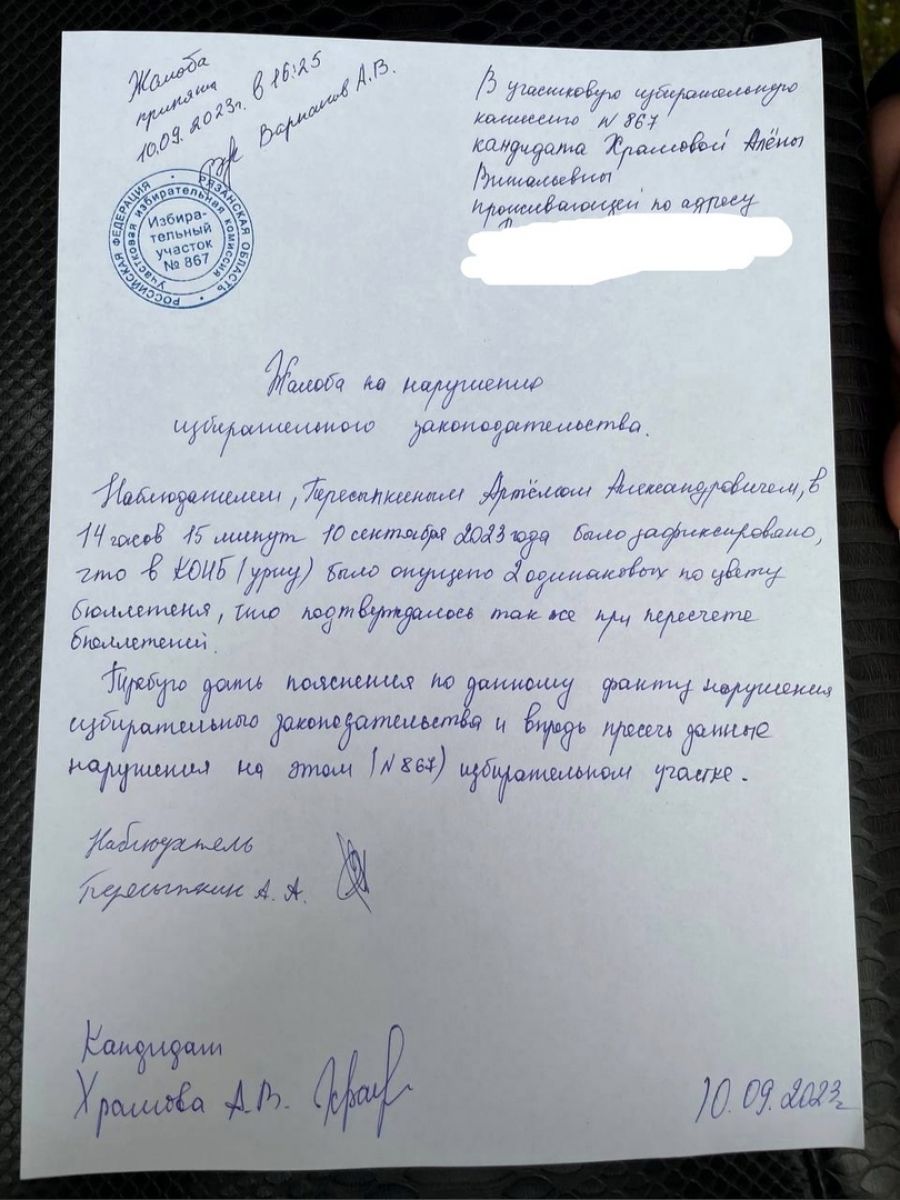 Жалоба
принята
10.09.2023г. в 16:25
Варламов А.В.
РОССИЙСКАЯ ФЕДЕРАЦИЯ • РЯЗАНСКАЯ ОБЛАСТЬ •
Участковая избирательная комиссия
Избира-
тельный
участок
№ 867
В участковую избирательную
комиссию N 867
кандидата Храмовой Алёны
Витальевны
проживающей по адресу
Жалоба на нарушение
избирательного законодательства.
Наблюдателем, Пересыпкиным Артёмом Александровичем, в
14 часов 15 минут 10 сентября 2023 года было зафиксировано,
что в КОИБ (урну) было опущено 2 одинаковых по цвету
бюллетеня, что подтверждалось так же при пересчете
бюллетеней.
Требую дать пояснения по данному факту нарушения
избирательного законодательства и впредь пресечь данные
нарушения на этом (N 867) избирательном участке.
Наблюдатель
Пересыпкин А. А.
Кандидат
Храмова А.В.
10.09.2023г